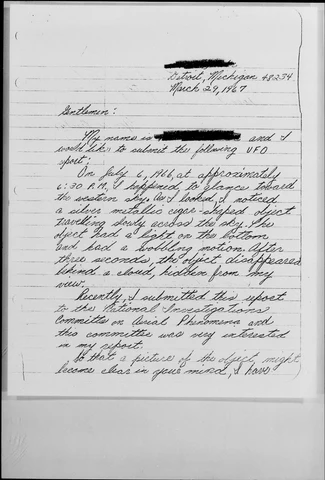 Detroit, Michigan 48234
March 29, 1967
Gentlemen:
My name is and I
would like to submit the following UFO
report:
On July 6, 1966, at approximately
6:30 P.M., I happened to glance toward
the western sky. As I looked, I noticed
a silver metallic cigar-shaped object
travelling slowly across the sky. The
object had a light on the bottom
and had a wobbling motion. After
three seconds, the object disappeared
behind a cloud, hidden from my
view.
Recently, I submitted this report
to the National Investigations
Committee on Aerial Phenomena and
this committee was very interested
in my report.
So that a picture of the object might
become clear in your mind, I have